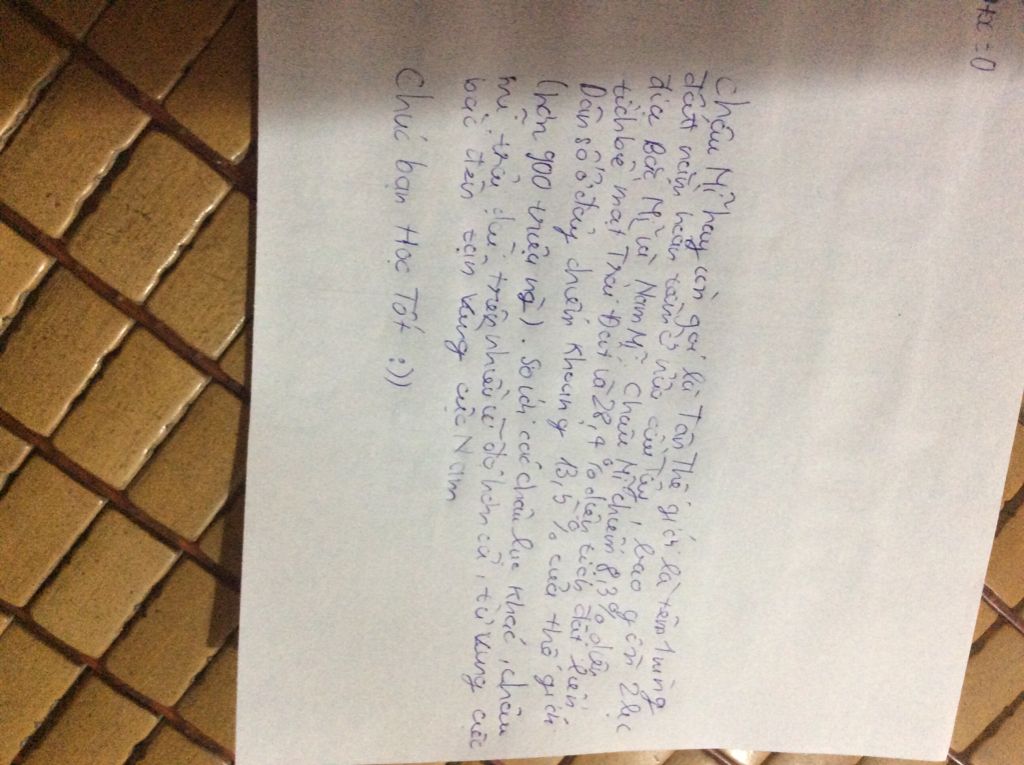 +x = 0
Châu Mĩ hay còn gọi là Tân Thế giới là tên 1 vùng
đất nằm hoàn toàn ở nửa cầu Tây, bao gồm 2 lục
địa Bắc Mĩ và Nam Mĩ. Châu Mĩ chiếm 8,3% diện
tích bề mặt Trái Đất và 28,4% diện tích đất liền.
Dân số ở đây chiếm khoảng 13,5% của thế giới
(hơn 900 triệu ng). So với các châu lục khác, châu
mĩ trải dài trên nhiều vĩ độ hơn cả, từ vùng cực
bắc đến tận vùng cực Nam
Chúc bạn Học Tốt :))